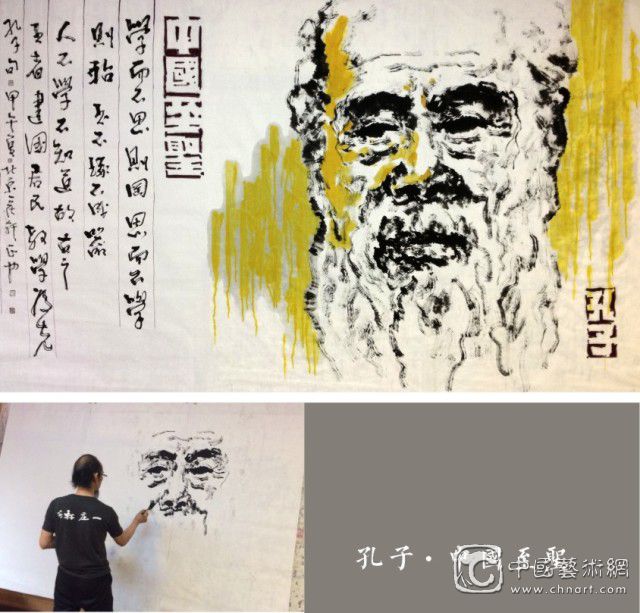 中國至聖
學而不思則罔思而不學
則殆 玉不琢不成器
人不學不知道故古之
王者建國君民教學為先
孔子句 甲午夏日北京
孔子
孔子·中國至聖
中國藝術網
www.chnart.com